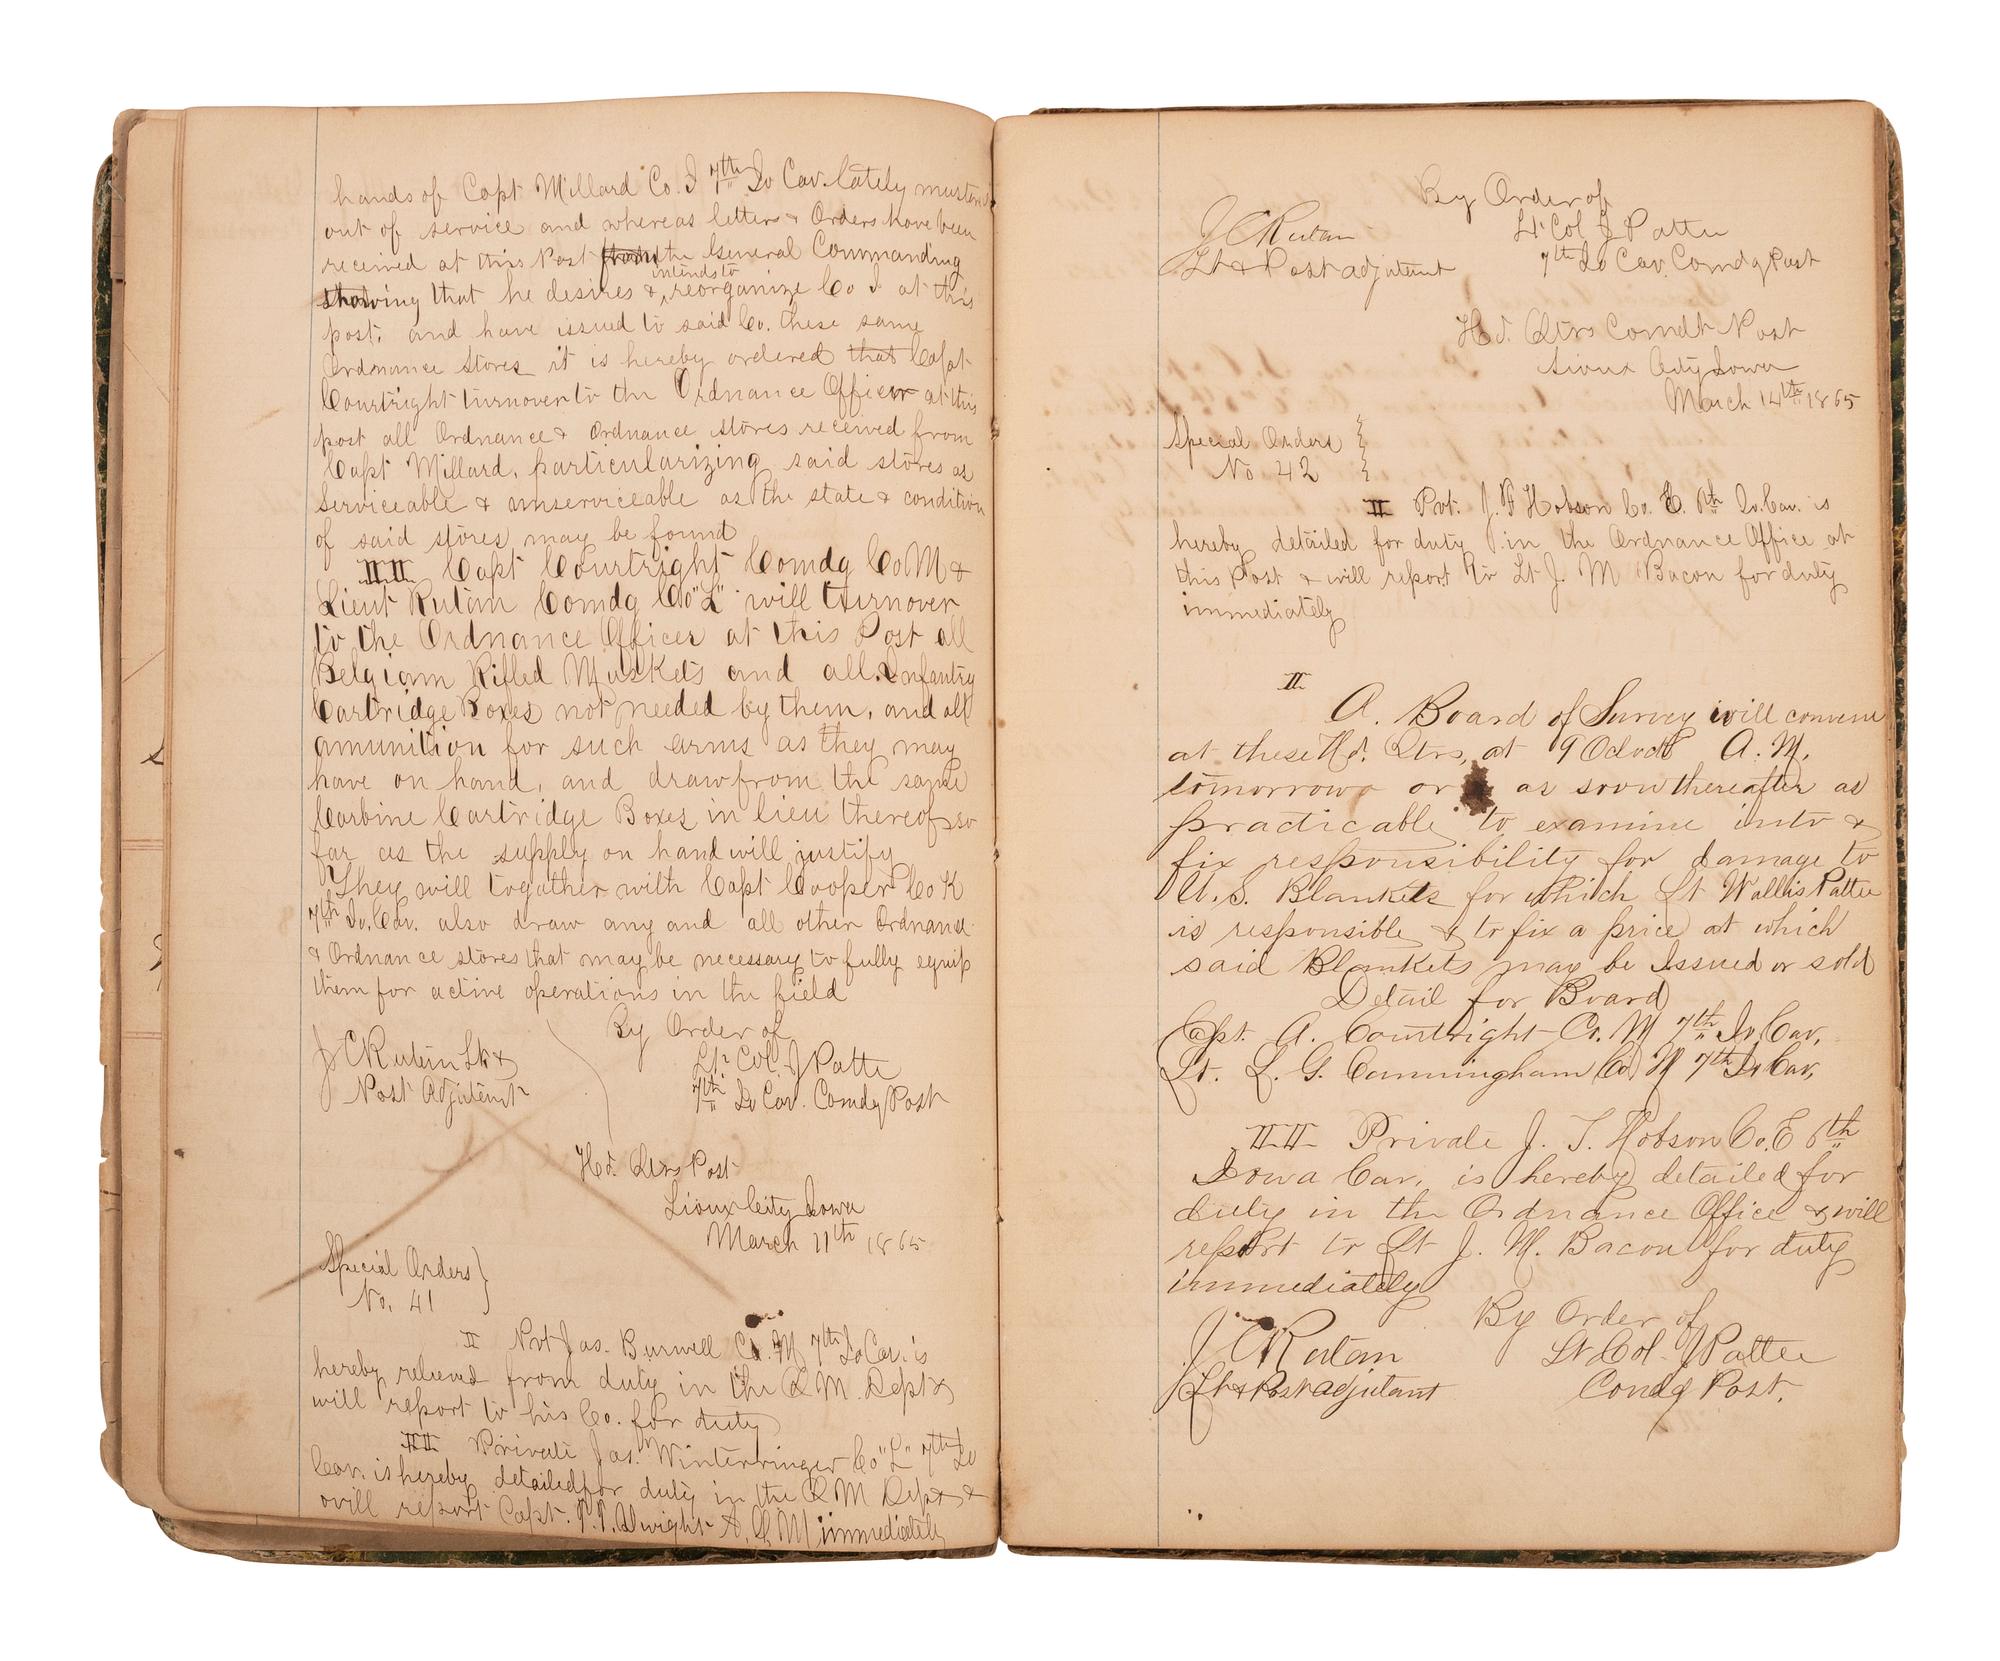 hands of Capt Millard Co. I 7th Io Cav. lately mustered
out of service and whereas letters & Orders have been
received at this Post from the General Commanding
intends to
showing that he desires & reorganize Co I at this
post, and have issued to said Co. these same
Ordnance Stores it is hereby ordered that Capt
Courtright turnover to the Ordnance Officer at this
post all Ordnance & Ordnance stores received from
Capt Millard, particularizing said stores as
Serviceable & unserviceable as the state & condition
of said stores may be found
II II Capt Courtright Comdg Co M &
Lieut Rutan Comdg Co "L" will turnover
to the Ordnance Officer at this Post all
Belgian Rifled Muskets and all Infantry
Cartridge Boxes not needed by them, and all
amunition for such arms as they may
have on hand, and draw from the same
Carbine Cartridge Boxes in lieu thereof so
far as the supply on hand will justify
They will together with Capt Cooper Co K
7th Io. Cav. also draw any and all other Ordnance
& Ordnance stores that may be necessary to fully equip
them for active operations in the field
By Order of
J C Rutan Lt &
Lt. Col. J Patte
Post Adjutant
7th Io Cav. Comdg Post
Hd. Qtrs Post
Sioux City Iowa
March 11th 1865
Special Orders
No. 41
II Pvt Jas. Burwell Co. M 7th Io Cav. is
hereby relieved from duty in the Q M Dept &
will report to his Co. for duty
II II Private Jas. Winterringer Co "L" 7th Io
Cav. is hereby detailed for duty in the Q M Dept &
will report Capt. Dwight A. Q M immediately
By Order of
J C Rutan
Lt Col J Pattee
Lt & Post adjutant
7th Io Cav. Comdg Post
Hd. Qtrs Comdt Post
Sioux City Iowa
March 14th 1865
Special Orders
No 42
II Pvt. J. F Hobson Co. E. 6th Io. Cav. is
hereby detailed for duty in the Ordnance Office at
this Post & will report to Lt J. M Bacon for duty
immediately
II
A. Board of Survey will convene
at these Hd. Qtrs, at 9 Oclock A. M.
tomorrow or as soon thereafter as
practicable to examine into &
fix responsibility for damage to
U. S. Blankets for which Lt Wallis Pattee
is responsible & to fix a price at which
said Blankets may be Issued or sold
Detail for Board
Cpt. A. Courtright Co. M 7th Io. Cav,
Lt. L. G. Cunningham Co M 7th Io Cav,
II II Private J. T. Hobson Co. E 6th
Iowa Cav. is hereby detailed for
duty in the Ordnance Office & will
report to Lt J. M. Bacon for duty
immediately
By Order of
J C Rutan
Lt Col. J Pattee
Lt & Post adjutant
Comdg Post.